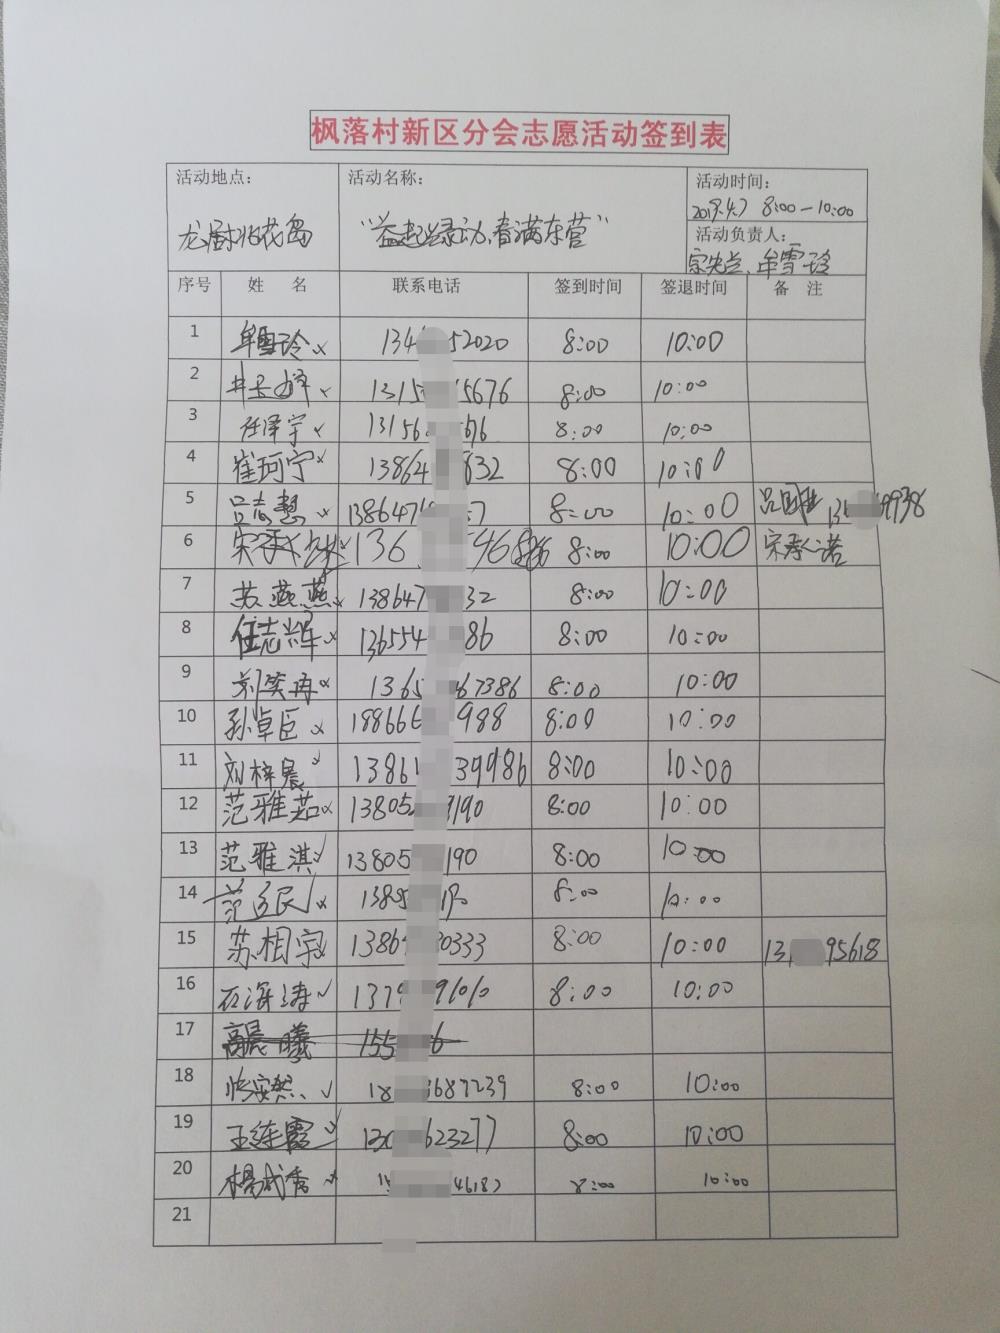 枫落村新区分会志愿活动签到表
活动地点： 活动名称： 活动时间：
龙居桃花岛 "益起绿动、春满东营" 2019.4.7 8:00—10:00
活动负责人：
牟雪玲
序号 姓 名 联系电话 签到时间 签退时间 备 注
1 牟雪玲 134 52020 8:00 10:00
2 1315 5676 8:00 10:00
3 任泽宇 13156 676 8:00 10:00
4 崔珂宁 13864 632 8:00 10:00
5 吕志慧 1386471 7 8:00 10:00 9938
6 136 8:00 10:00 宋承诺
7 苏燕燕 138647 32 8:00 10:00
8 任志辉 136554 86 8:00 10:00
9 刘笑冉 1365 67386 8:00 10:00
10 孙卓臣 188666 988 8:00 10:00
11 刘梓晨 1386 39986 8:00 10:00
12 范雅茹 13805 190 8:00 10:00
13 范雅淇 13805 190 8:00 10:00
14 8:00 10:00
15 苏相宇 1386 0333 8:00 10:00 13 95618
16 石海涛 1379 8:00 10:00
17 高晨曦 155 6
18 18 3687239 8:00 10:00
19 王连霞 130 623277 8:00 10:00
20 8:00 10:00
21